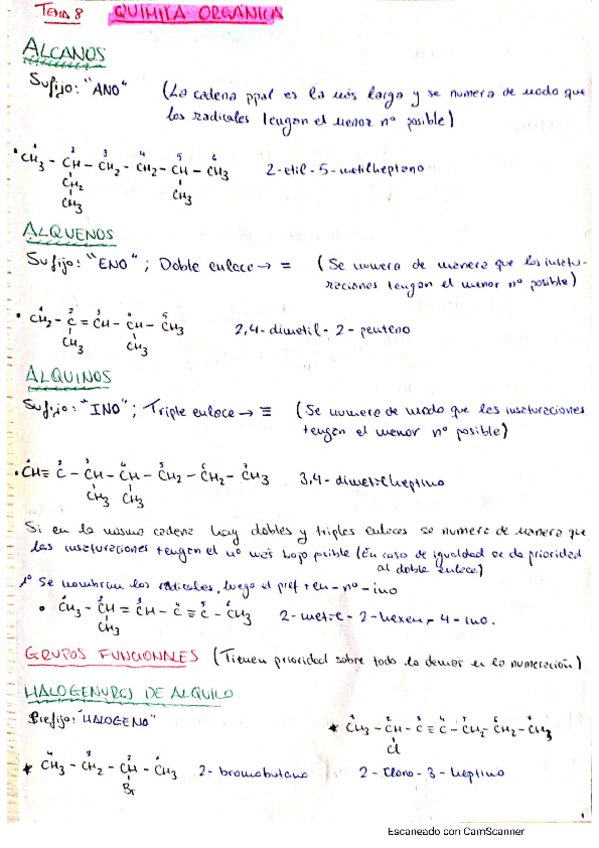 TEMA 8 QUIMICA ORGÁNICA
ALCANOS
Sufijo: "ANO" (La cadena ppal es la más larga y se numera de modo que
los radicales tengan el menor nº posible)
1 2 3 4 5 6
CH3 - CH - CH2 - CH2 - CH - CH3 2-etil-5-metilheptano
CH2 CH3
CH3
ALQUENOS
Sufijo: "ENO"; Doble enlace → = (Se numera de manera que las insatu-
raciones tengan el menor nº posible)
CH2 - C = CH - CH - CH3 2,4-dimetil-2-penteno
CH3 CH3
ALQUINOS
Sufijo: "INO"; Triple enlace → ≡ (Se numera de modo que las insaturaciones
tengan el menor nº posible)
CH ≡ C - CH - CH - CH2 - CH2 - CH3 3,4-dimetilheptino
CH3 CH3
Si en la misma cadena hay dobles y triples enlaces se numera de manera que
las insaturaciones tengan el nº más bajo posible (En caso de igualdad se da prioridad
al doble enlace)
1º Se nombran los radicales, luego el pref + en - nº - ino
CH3 - CH = CH - C ≡ C - CH3 2-metil-2-hexen-4-ino.
CH3
GRUPOS FUNCIONALES (Tienen prioridad sobre todo lo demás en la numeración)
HALOGENUROS DE ALQUILO
Prefijo: "HALOGENO"
* CH3 - CH - C ≡ C - CH2 - CH2 - CH3
Cl
* CH3 - CH2 - CH - CH3 2-bromobutano 2-Cloro-3-heptino
Br
1
Escaneado con CamScanner